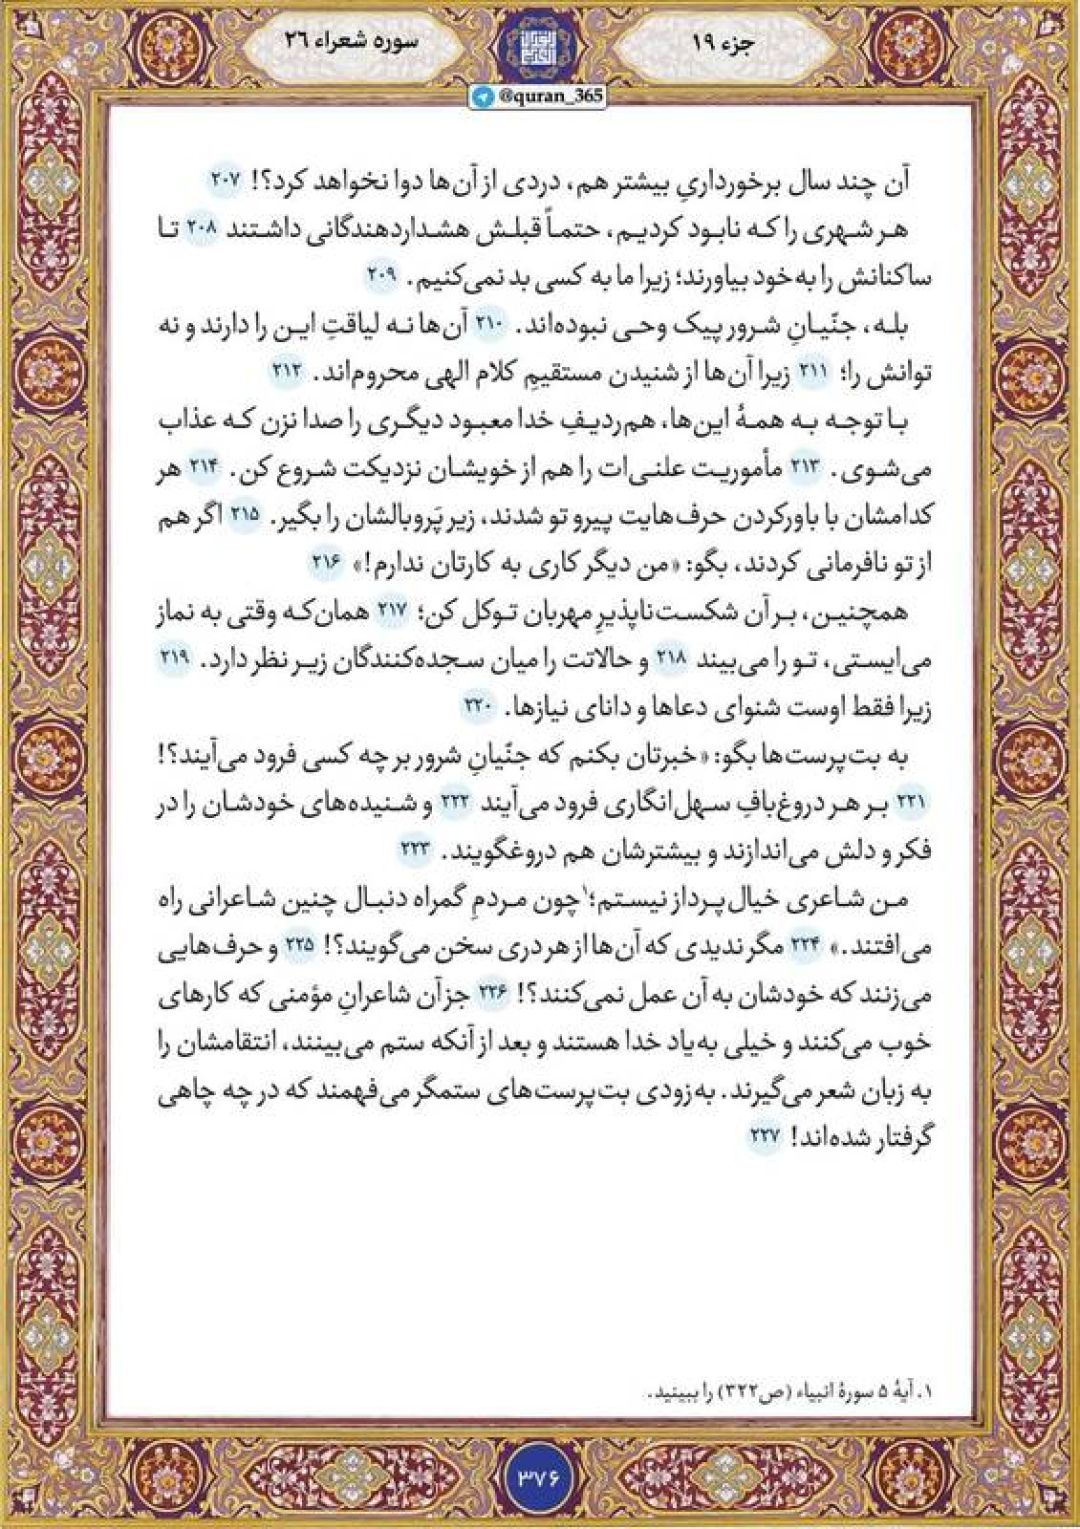 جزء ۱۹
سوره شعراء ۲۶
@quran_365
آن چند سال برخورداریِ بیشتر هم، دردی از آن‌ها دوا نخواهد کرد؟! ۲۰۷
هر شهری را که نابود کردیم، حتماً قبلش هشداردهندگانی داشتند ۲۰۸ تا
ساکنانش را به‌خود بیاورند؛ زیرا ما به کسی بد نمی‌کنیم. ۲۰۹
بله، جنّیانِ شرور پیک وحی نبوده‌اند. ۲۱۰ آن‌ها نه لیاقتِ این را دارند و نه
توانش را؛ ۲۱۱ زیرا آن‌ها از شنیدن مستقیمِ کلام الهی محروم‌اند. ۲۱۲
با توجه به همهٔ این‌ها، هم‌ردیفِ خدا معبود دیگری را صدا نزن که عذاب
می‌شوی. ۲۱۳ مأموریت علنی‌ات را هم از خویشان نزدیکت شروع کن. ۲۱۴ هر
کدامشان با باورکردن حرف‌هایت پیرو تو شدند، زیر پَروبالشان را بگیر. ۲۱۵ اگر هم
از تو نافرمانی کردند، بگو: «من دیگر کاری به کارتان ندارم!» ۲۱۶
همچنین، بر آن شکست‌ناپذیرِ مهربان توکل کن؛ ۲۱۷ همان‌که وقتی به نماز
می‌ایستی، تو را می‌بیند ۲۱۸ و حالاتت را میان سجده‌کنندگان زیر نظر دارد. ۲۱۹
زیرا فقط اوست شنوای دعاها و دانای نیازها. ۲۲۰
به بت‌پرست‌ها بگو: «خبرتان بکنم که جنّیانِ شرور بر چه کسی فرود می‌آیند؟!
۲۲۱ بر هر دروغ‌بافِ سهل‌انگاری فرود می‌آیند ۲۲۲ و شنیده‌های خودشان را در
فکر و دلش می‌اندازند و بیشترشان هم دروغگویند. ۲۲۳
من شاعری خیال‌پرداز نیستم؛۱ چون مردمِ گمراه دنبال چنین شاعرانی راه
می‌افتند.» ۲۲۴ مگر ندیدی که آن‌ها از هر دری سخن می‌گویند؟! ۲۲۵ و حرف‌هایی
می‌زنند که خودشان به آن عمل نمی‌کنند؟! ۲۲۶ جز آن شاعرانِ مؤمنی که کارهای
خوب می‌کنند و خیلی به‌یاد خدا هستند و بعد از آنکه ستم می‌بینند، انتقامشان را
به زبان شعر می‌گیرند. به‌زودی بت‌پرست‌های ستمگر می‌فهمند که در چه چاهی
گرفتار شده‌اند! ۲۲۷
۱. آیهٔ ۵ سورهٔ انبیاء (ص۳۲۲) را ببینید.
۳۷۶